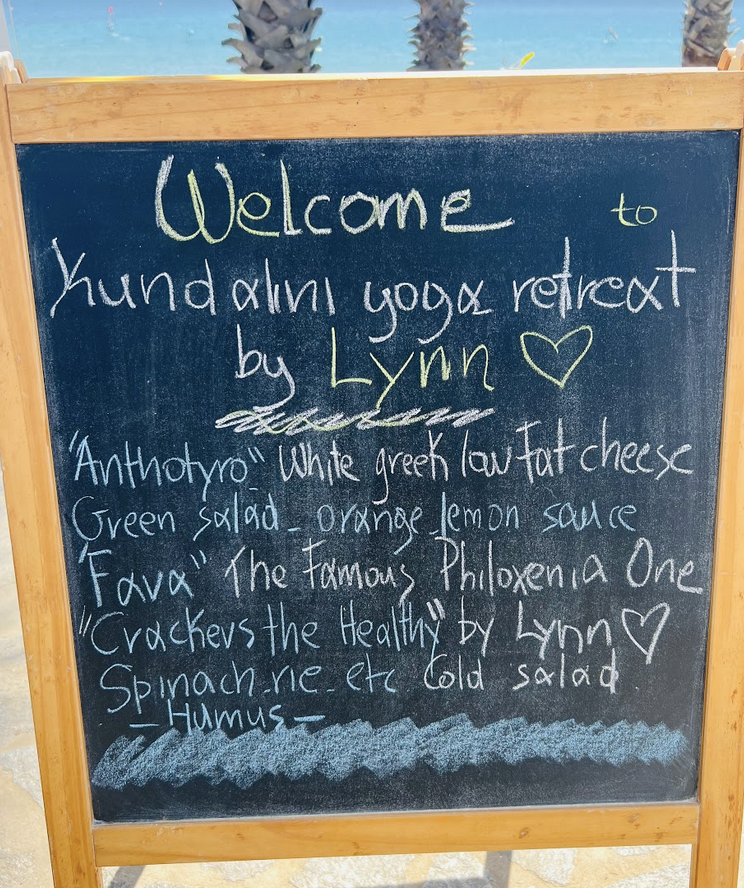 Welcome to
Kundalini yoga retreat
by Lynn
"Anthotyro" White greek low fat cheese
Green salad - orange - lemon sauce
"Fava" The Famous Philoxenia One
"Crackers the Healthy" by Lynn
Spinach - rie - etc Cold salad.
- Humus -